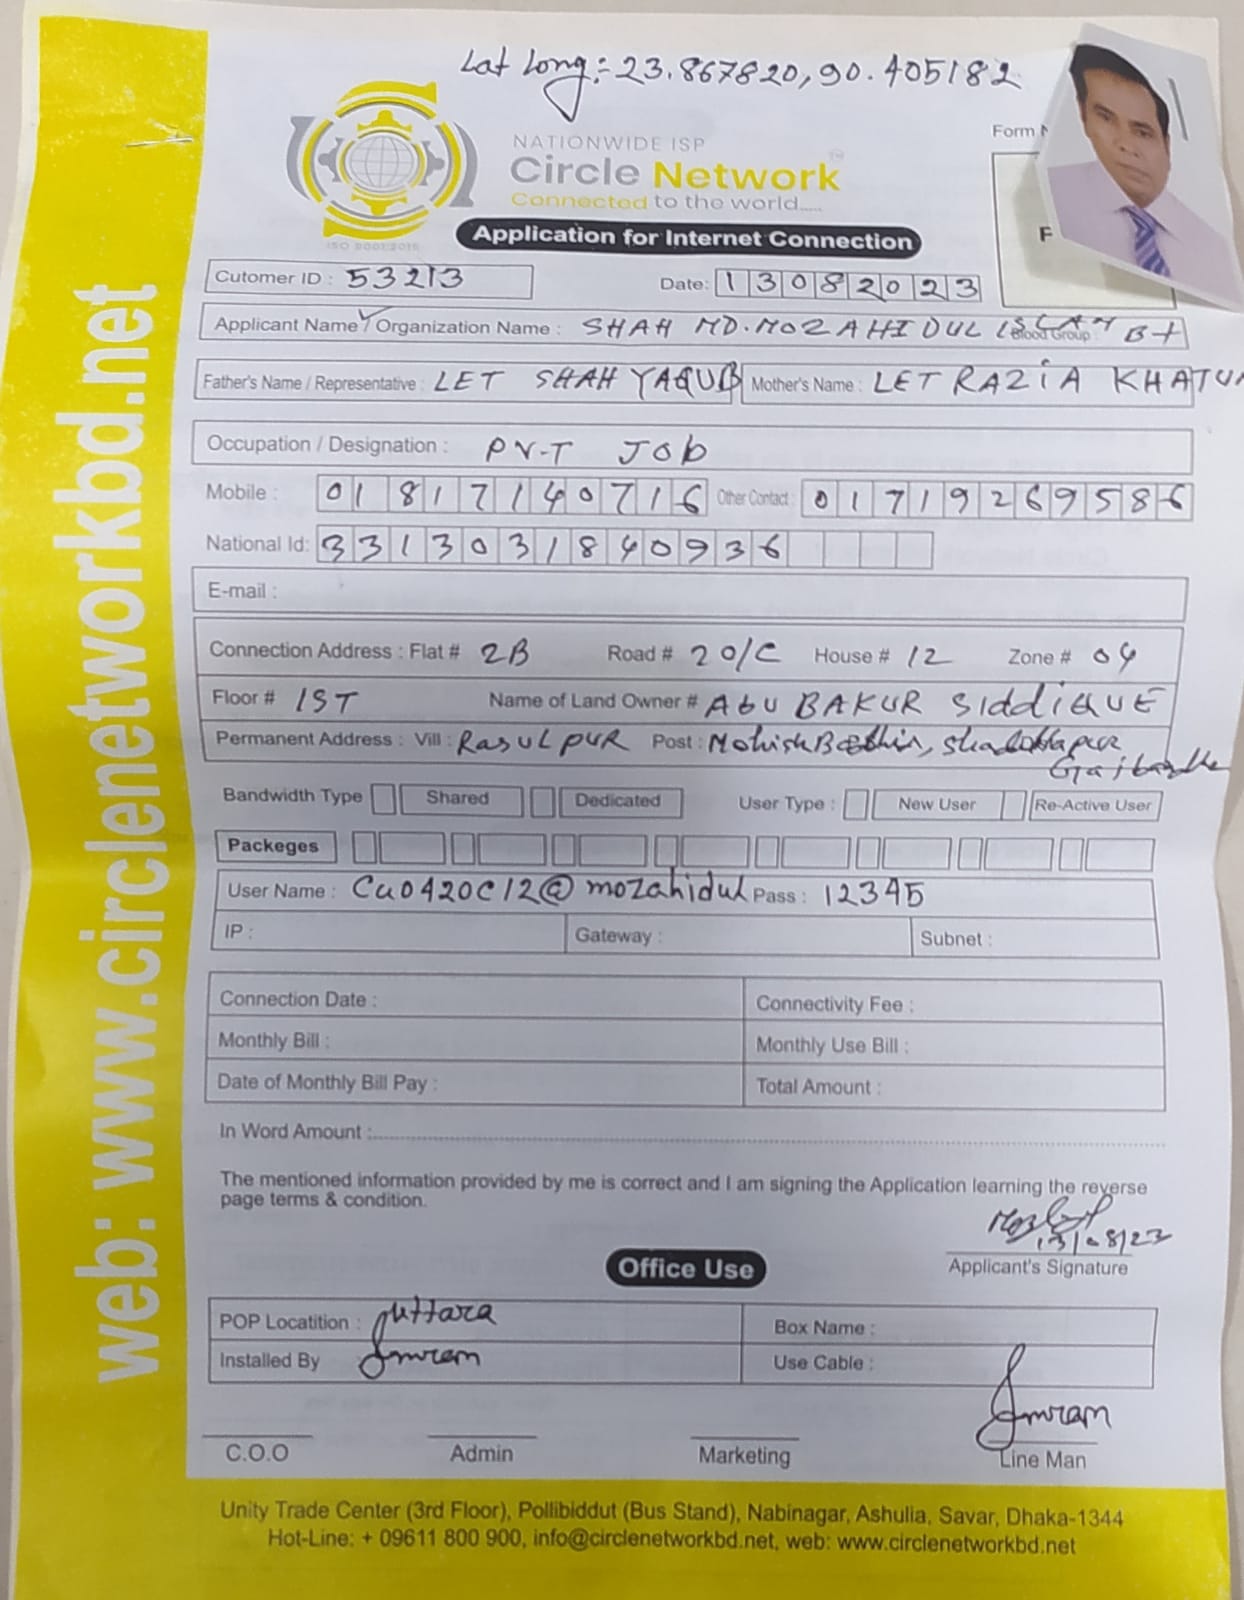 Lat Long:- 23.867820, 90.405182
NATIONWIDE ISP
Form
Circle Network
Connected to the world.....
ISO 9001:2015
Application for Internet Connection
Cutomer ID : 53213 Date: 13082023
Applicant Name / Organization Name : SHAH MD. MOZAHIDUL ISLAM Blood Group : B+
Father's Name / Representative : LET SHAH YAQUB Mother's Name : LET RAZiA KHATUN
Occupation / Designation : PV-T Job
Mobile : 01817140716 Other Contact : 01719269586
National Id: 3313031840936
E-mail :
Connection Address : Flat # 2B Road # 20/C House # 12 Zone # 04
Floor # 1ST Name of Land Owner # AbU BAKUR SiddiQUE
Permanent Address : Vill : RasULPUR Post :
Bandwidth Type Shared Dedicated User Type : New User Re-Active User
Packeges
User Name : Cu0420C12@mozahidul Pass : 12345
IP : Gateway : Subnet :
Connection Date : Connectivity Fee :
Monthly Bill : Monthly Use Bill :
Date of Monthly Bill Pay : Total Amount :
In Word Amount :
The mentioned information provided by me is correct and I am signing the Application learning the reverse
page terms & condition.
13/08/23
Applicant's Signature
Office Use
POP Locatition : uttara Box Name :
Installed By Imran Use Cable :
Imran
C.O.O Admin Marketing Line Man
Unity Trade Center (3rd Floor), Pollibiddut (Bus Stand), Nabinagar, Ashulia, Savar, Dhaka-1344
Hot-Line: + 09611 800 900, info@circlenetworkbd.net, web: www.circlenetworkbd.net
web: www.circlenetworkbd.net